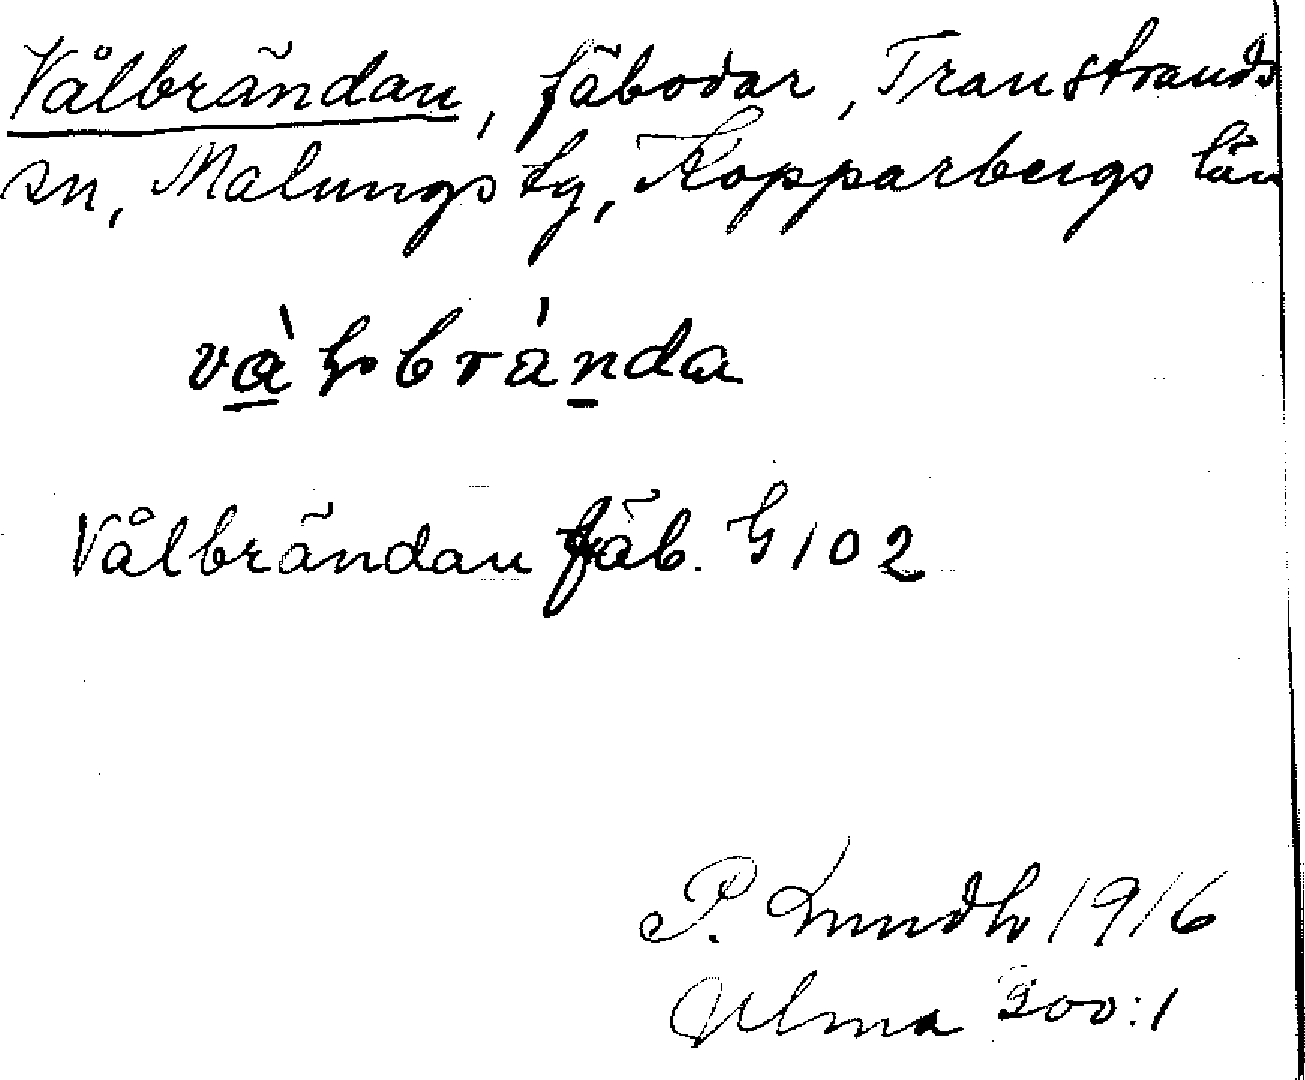 Vålbrändan, fäbodar, Transtrands
sn, Malungs tg, Kopparbergs län
Vålbrändan fäb. G102
P. Lundh 1916
Ulma 200:1